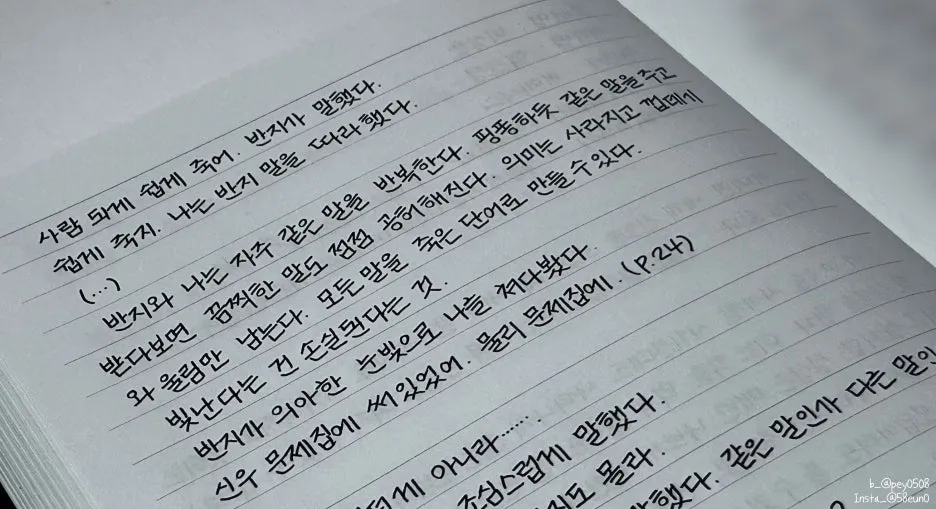 사람 되게 쉽게 죽어. 반지가 말했다.
쉽게 죽지. 나는 반지 말을 따라했다.
(...)
반지와 나는 자주 같은 말을 반복한다. 핑퐁하듯 같은 말을 주고
받다보면 끔찍한 말도 점점 공허해진다. 의미는 사라지고 껍데기
와 울림만 남는다. 모든 말을 죽은 단어로 만들 수 있다.
빛난다는 건 손실된다는 것.
반지가 의아한 눈빛으로 나를 쳐다봤다.
신우 문제집에 써있었어. 물리 문제집에. (p.24)
아니라……
조심스럽게 말했다.
몰라.
말했다. 같은 말인가 다른 말인
b_@pey0508
Insta_@58eun0